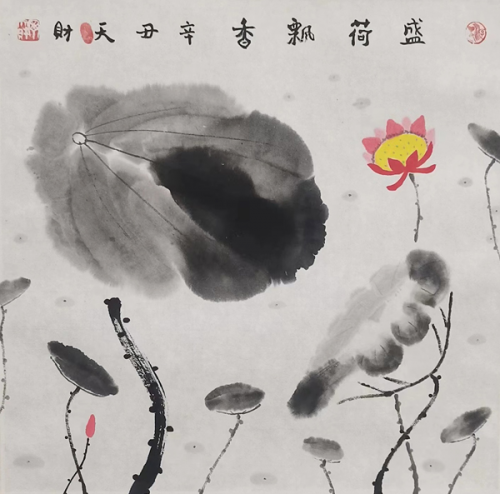 盛荷飘香辛丑天财